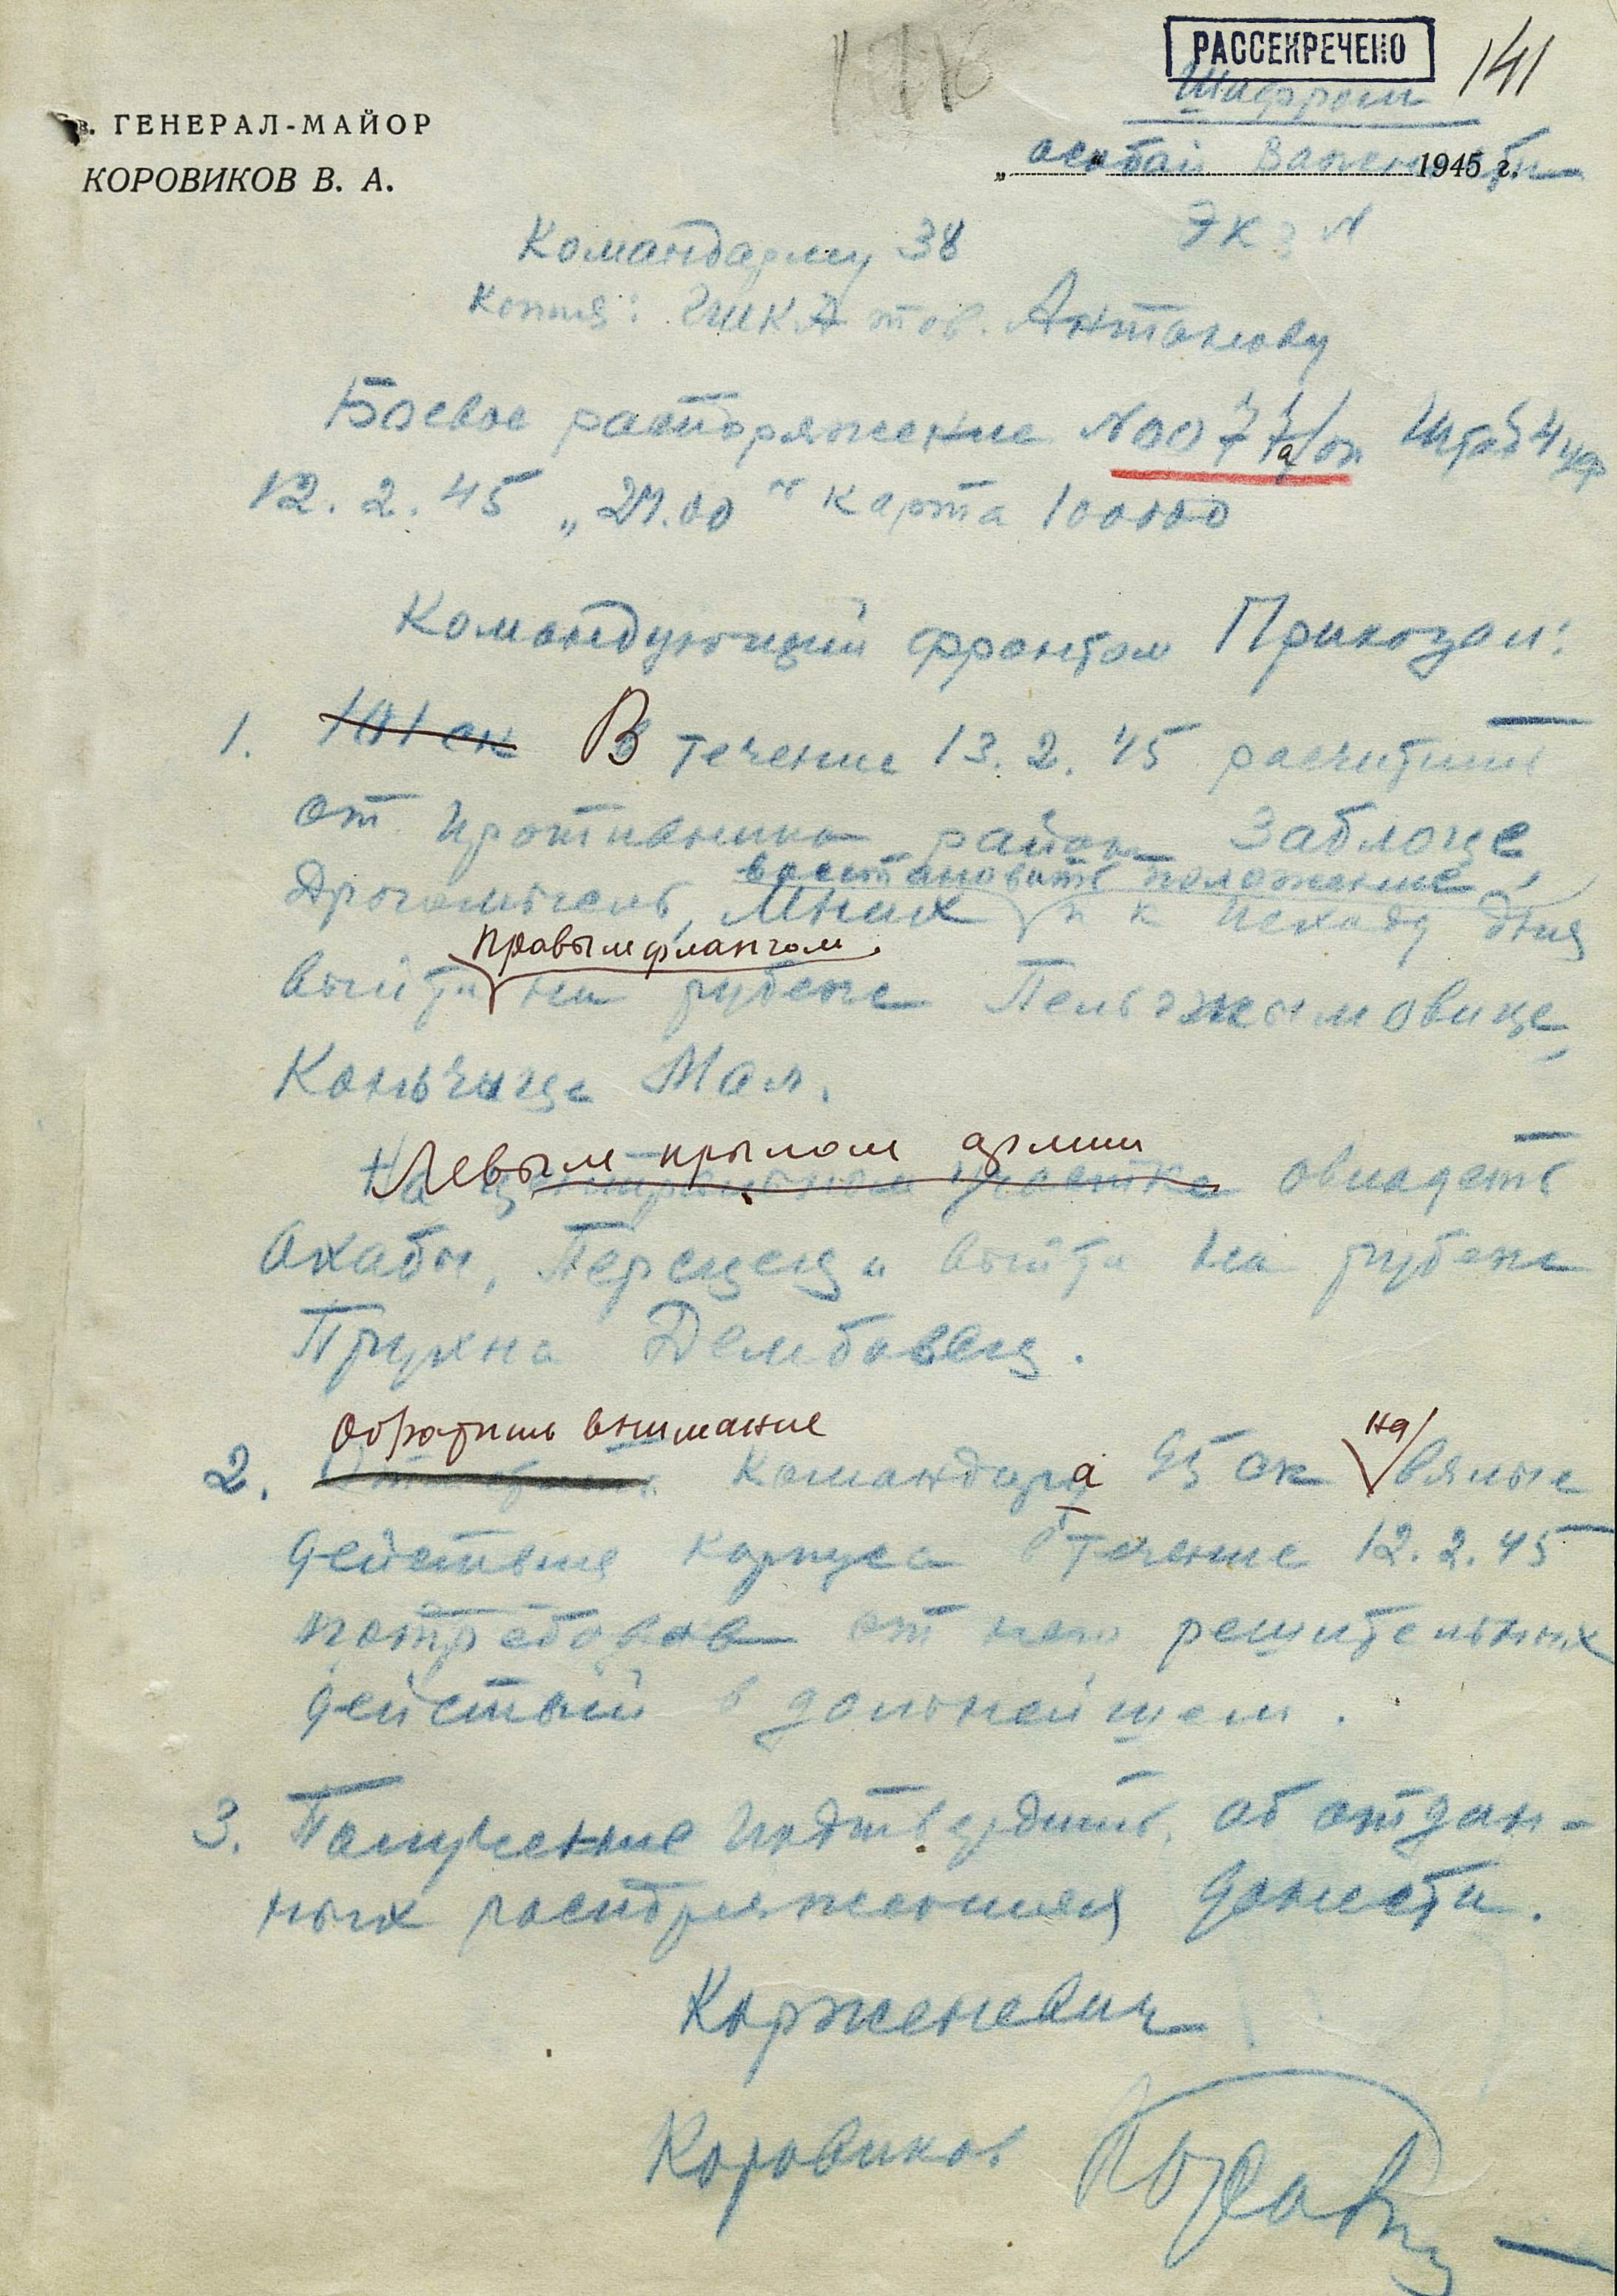 РАССЕКРЕЧЕНО
141
Шифром
Гв. ГЕНЕРАЛ-МАЙОР
КОРОВИКОВ В. А.
особой важности
„ “ 1945 г.
Экз N
Командарму 38
Копия: ГШКА тов. Антонову
Боевое распоряжение N0077а/оп Штаб 4 уф
12. 2. 45 „21.00“ Карта 100000
Командующий фронтом Приказал:
1. 101 ск В течение 13. 2. 45 расчитить
от противника район Заблоце
восстановить положение
Дрогомысль, Мних и к исходу дня
правым флангом
выйти на рубеж Пельгжымовице,
Коньчице Мал.
Левым крылом армии
На центральном участке овладеть
Охабы, Перецец и выйти на рубеж
Прухна Дембовец.
Обратить внимание на
2. Командира 95 ск вялые
действия корпуса в течение 12. 2. 45
потребовав от него решительных
действий в дальнейшем.
3. Получение подтвердить, об отдан-
ных распоряжениях донести.
Корженевич
Коровиков